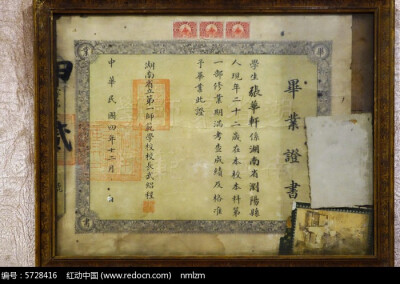 畢業證書
學生張華軒係湖南省瀏陽縣
人現年二十二歲在本校本科第
一部修業期滿考查成績及格准
予畢業此證
湖南省立第一師範學校校長武紹程
中華民國四年十二月
號
编号：5728416 红动中国 (www.redocn.com) nmlzm